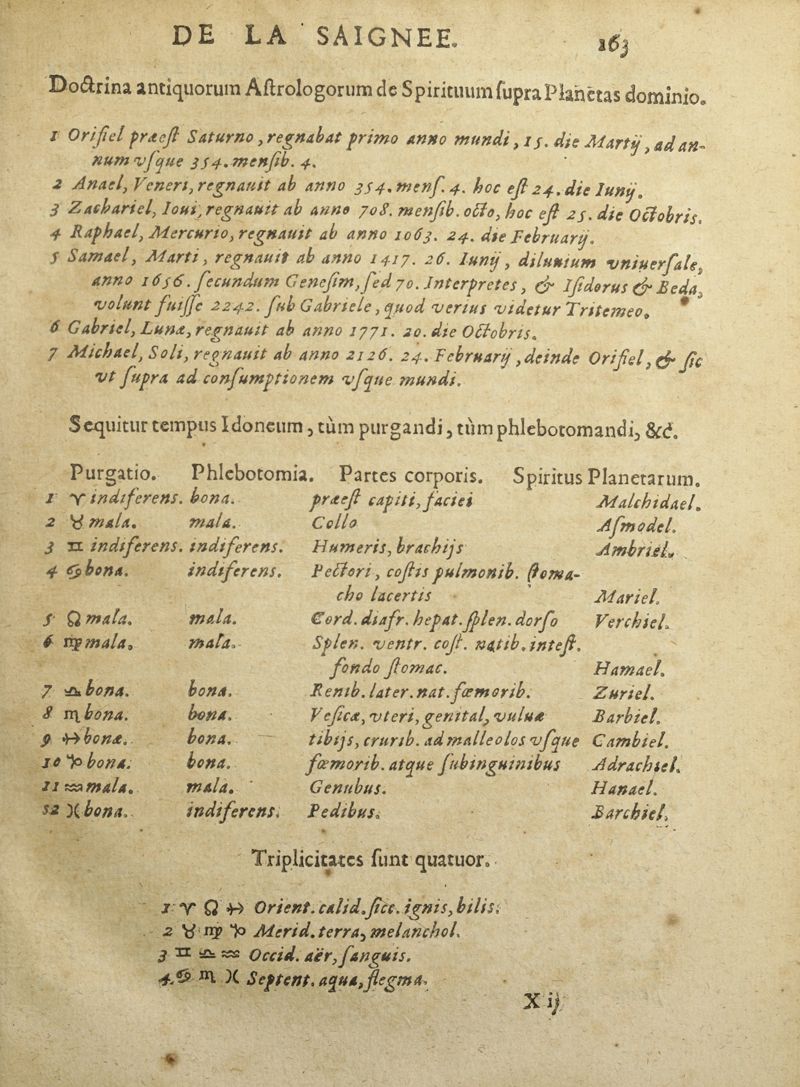 DE LA SAIGNEE. 163
Doctrina antiquorum Aſtrologorum de Spirituum ſupra Planetas dominio.
1 Orifiel præeſt Saturno, regnabat primo anno mundi, 15. die Martij, ad an-
num vſque 354. menſib. 4.
2 Anael, Veneri, regnauit ab anno 354. menſ. 4. hoc eſt 24. die Iunij.
3 Zachariel, Ioui, regnauit ab anno 708. menſib. octo, hoc eſt 25. die Octobris.
4 Raphael, Mercurio, regnauit ab anno 1063. 24. die Februarij.
5 Samael, Marti, regnauit ab anno 1417. 26. Iunij, diluuium vniuerſale,
anno 1656. ſecundum Geneſim, ſed 70. Interpretes, & Iſidorus & Beda,
volunt fuiſſe 2242. ſub Gabriele, quod verius videtur Tritemeo.
6 Gabriel, Lunæ, regnauit ab anno 1771. 20. die Octobris.
7 Michael, Soli, regnauit ab anno 2126. 24. Februarij, deinde Orifiel, & ſic
vt ſupra ad conſumptionem vſque mundi.
Sequitur tempus Idoneum, tùm purgandi, tùm phlebotomandi, &c.
Purgatio. Phlebotomia. Partes corporis. Spiritus Planetarum.
1 ♈ indiferens. bona. præeſt capiti, faciei Malchidael.
2 ♉ mala. mala. Collo Aſmodel.
3 ♊ indiferens. indiferens. Humeris, brachijs Ambriel.
4 ♋ bona. indiferens. Pectori, coſtis pulmonib. ſtoma-
cho lacertis Mariel.
5 ♌ mala. mala. Cord. diafr. hepat. ſplen. dorſo Verchiel.
6 ♍ mala. mala. Splen. ventr. coſt. natib. inteſt.
fondo ſtomac. Hamael.
7 ♎ bona. bona. Renib. later. nat. fœmorib. Zuriel.
8 ♏ bona. bona. Veſicæ, vteri, genital, vuluæ Barbiel.
9 ♐ bonæ. bona. tibijs, crurib. ad malleolos vſque Cambiel.
10 ♑ bona. bona. fœmorib. atque ſubinguinibus Adrachiel.
11 ♒ mala. mala. Genubus. Hanael.
12 ♓ bona. indiferens. Pedibus. Barchiel.
Triplicitates ſunt quatuor.
1 ♈ ♌ ♐ Orient. calid. ſicc. ignis, bilis.
2 ♉ ♍ ♑ Merid. terra, melanchol.
3 ♊ ♎ ♒ Occid. aër, ſanguis.
4. ♋ ♏ ♓ Septent. aqua, flegma.
X ij